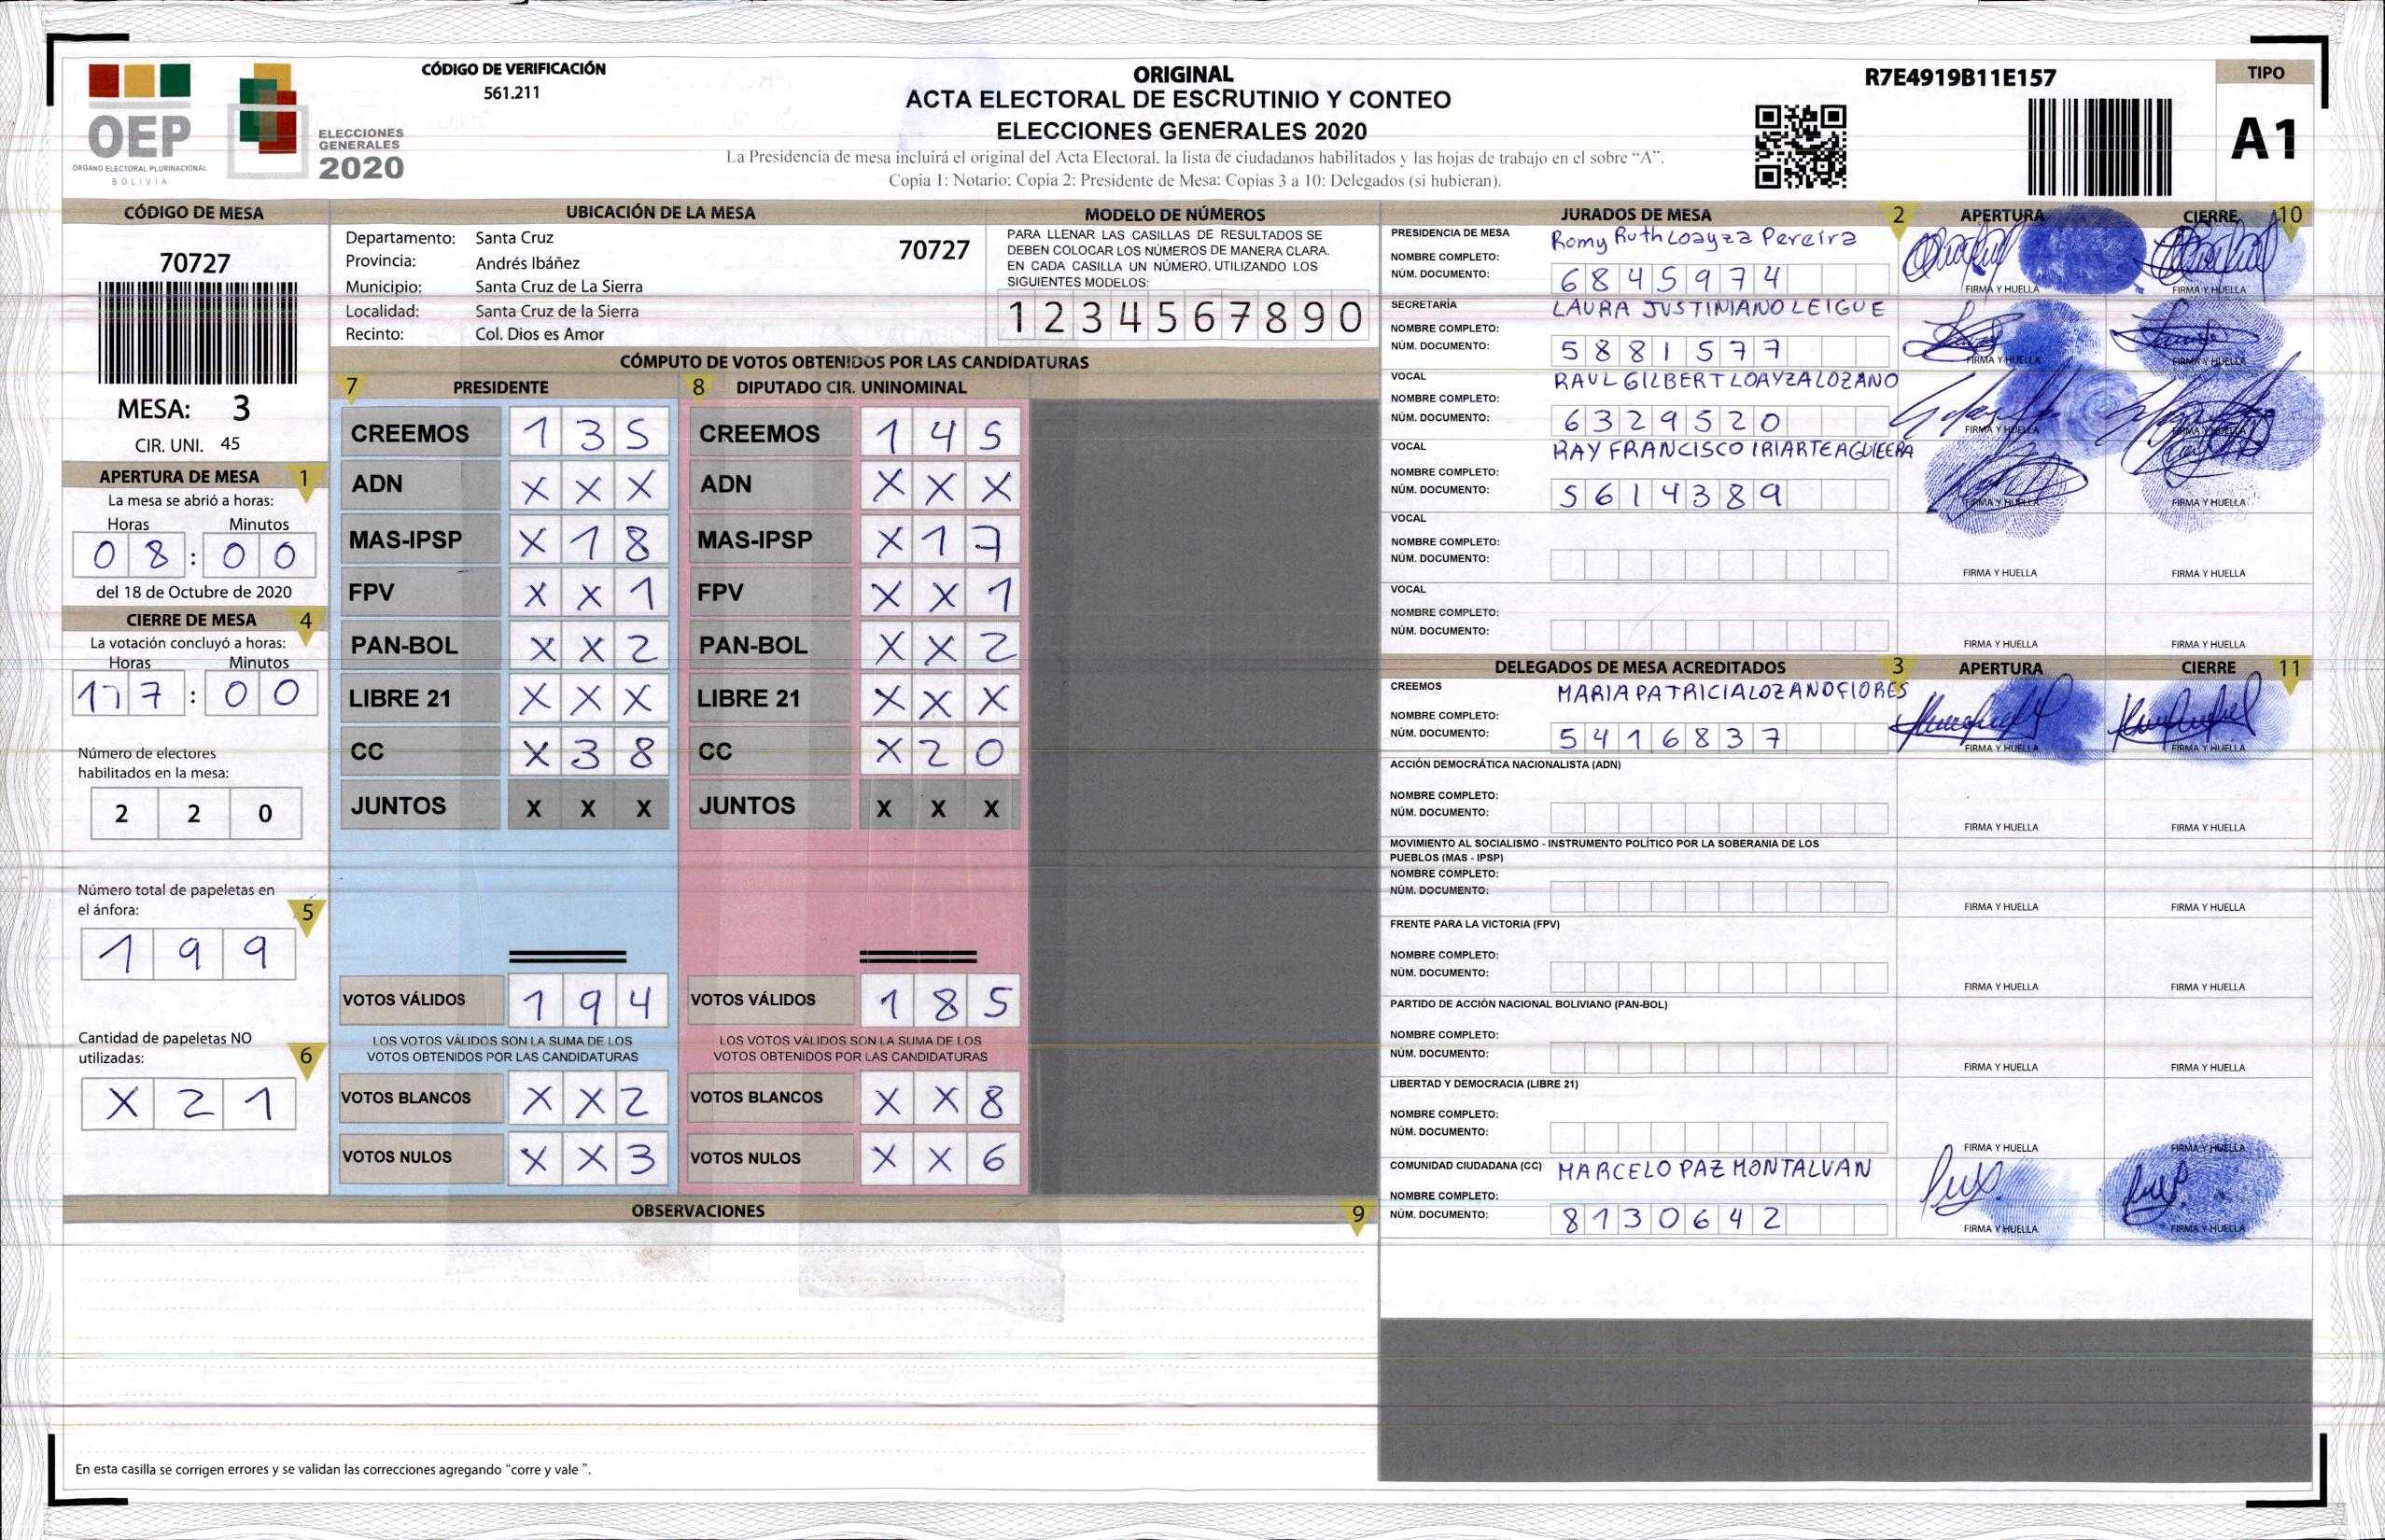 OEP
ORGANO ELECTORAL PLURINACIONAL
BOLIVIA
ELECCIONES
GENERALES
2020
CÓDIGO DE VERIFICACIÓN
561.211
ORIGINAL
ACTA ELECTORAL DE ESCRUTINIO Y CONTEO
ELECCIONES GENERALES 2020
La Presidencia de mesa incluirá el original del Acta Electoral, la lista de ciudadanos habilitados y las hojas de trabajo en el sobre “A”.
Copia 1: Notario: Copia 2: Presidente de Mesa: Copias 3 a 10: Delegados (si hubieran).
R7E4919B11E157
TIPO
A1
CÓDIGO DE MESA
70727
MESA: 3
CIR. UNI. 45
APERTURA DE MESA 1
La mesa se abrió a horas:
Horas Minutos
0 8 : 0 0
del 18 de Octubre de 2020
CIERRE DE MESA 4
La votación concluyó a horas:
Horas Minutos
1 7 : 0 0
Número de electores
habilitados en la mesa:
2 2 0
Número total de papeletas en
el ánfora: 5
1 9 9
Cantidad de papeletas NO
utilizadas: 6
X 2 1
UBICACIÓN DE LA MESA
Departamento: Santa Cruz 70727
Provincia: Andrés Ibáñez
Municipio: Santa Cruz de La Sierra
Localidad: Santa Cruz de la Sierra
Recinto: Col. Dios es Amor
MODELO DE NÚMEROS
PARA LLENAR LAS CASILLAS DE RESULTADOS SE
DEBEN COLOCAR LOS NÚMEROS DE MANERA CLARA.
EN CADA CASILLA UN NÚMERO, UTILIZANDO LOS
SIGUIENTES MODELOS:
1 2 3 4 5 6 7 8 9 0
CÓMPUTO DE VOTOS OBTENIDOS POR LAS CANDIDATURAS
7 PRESIDENTE 8 DIPUTADO CIR. UNINOMINAL
CREEMOS 1 3 5 CREEMOS 1 4 5
ADN X X X ADN X X X
MAS-IPSP X 1 8 MAS-IPSP X 1 7
FPV X X 1 FPV X X 1
PAN-BOL X X 2 PAN-BOL X X 2
LIBRE 21 X X X LIBRE 21 X X X
CC X 3 8 CC X 2 0
JUNTOS X X X JUNTOS X X X
VOTOS VÁLIDOS 1 9 4 VOTOS VÁLIDOS 1 8 5
LOS VOTOS VÁLIDOS SON LA SUMA DE LOS LOS VOTOS VÁLIDOS SON LA SUMA DE LOS
VOTOS OBTENIDOS POR LAS CANDIDATURAS VOTOS OBTENIDOS POR LAS CANDIDATURAS
VOTOS BLANCOS X X 2 VOTOS BLANCOS X X 8
VOTOS NULOS X X 3 VOTOS NULOS X X 6
OBSERVACIONES 9
En esta casilla se corrigen errores y se validan las correcciones agregando “corre y vale ”.
JURADOS DE MESA 2 APERTURA CIERRE 10
PRESIDENCIA DE MESA Romy Ruth Loayza Pereira
NOMBRE COMPLETO:
NÚM. DOCUMENTO: 6 8 4 5 9 7 4
FIRMA Y HUELLA FIRMA Y HUELLA
SECRETARÍA LAURA JUSTINIANO LEIGUE
NOMBRE COMPLETO:
NÚM. DOCUMENTO: 5 8 8 1 5 7 7
FIRMA Y HUELLA FIRMA Y HUELLA
VOCAL RAUL GILBERT LOAYZA LOZANO
NOMBRE COMPLETO:
NÚM. DOCUMENTO: 6 3 2 9 5 2 0
FIRMA Y HUELLA FIRMA Y HUELLA
VOCAL RAY FRANCISCO IRIARTE AGUILERA
NOMBRE COMPLETO:
NÚM. DOCUMENTO: 5 6 1 4 3 8 9
FIRMA Y HUELLA FIRMA Y HUELLA
VOCAL
NOMBRE COMPLETO:
NÚM. DOCUMENTO:
FIRMA Y HUELLA FIRMA Y HUELLA
VOCAL
NOMBRE COMPLETO:
NÚM. DOCUMENTO:
FIRMA Y HUELLA FIRMA Y HUELLA
DELEGADOS DE MESA ACREDITADOS 3 APERTURA CIERRE 11
CREEMOS MARIA PATRICIA LOZANO FLORES
NOMBRE COMPLETO:
NÚM. DOCUMENTO: 5 4 1 6 8 3 7
FIRMA Y HUELLA FIRMA Y HUELLA
ACCIÓN DEMOCRÁTICA NACIONALISTA (ADN)
NOMBRE COMPLETO:
NÚM. DOCUMENTO:
FIRMA Y HUELLA FIRMA Y HUELLA
MOVIMIENTO AL SOCIALISMO - INSTRUMENTO POLÍTICO POR LA SOBERANIA DE LOS
PUEBLOS (MAS - IPSP)
NOMBRE COMPLETO:
NÚM. DOCUMENTO:
FIRMA Y HUELLA FIRMA Y HUELLA
FRENTE PARA LA VICTORIA (FPV)
NOMBRE COMPLETO:
NÚM. DOCUMENTO:
FIRMA Y HUELLA FIRMA Y HUELLA
PARTIDO DE ACCIÓN NACIONAL BOLIVIANO (PAN-BOL)
NOMBRE COMPLETO:
NÚM. DOCUMENTO:
FIRMA Y HUELLA FIRMA Y HUELLA
LIBERTAD Y DEMOCRACIA (LIBRE 21)
NOMBRE COMPLETO:
NÚM. DOCUMENTO:
FIRMA Y HUELLA FIRMA Y HUELLA
COMUNIDAD CIUDADANA (CC) MARCELO PAZ MONTALVAN
NOMBRE COMPLETO:
NÚM. DOCUMENTO: 8 1 3 0 6 4 2
FIRMA Y HUELLA FIRMA Y HUELLA